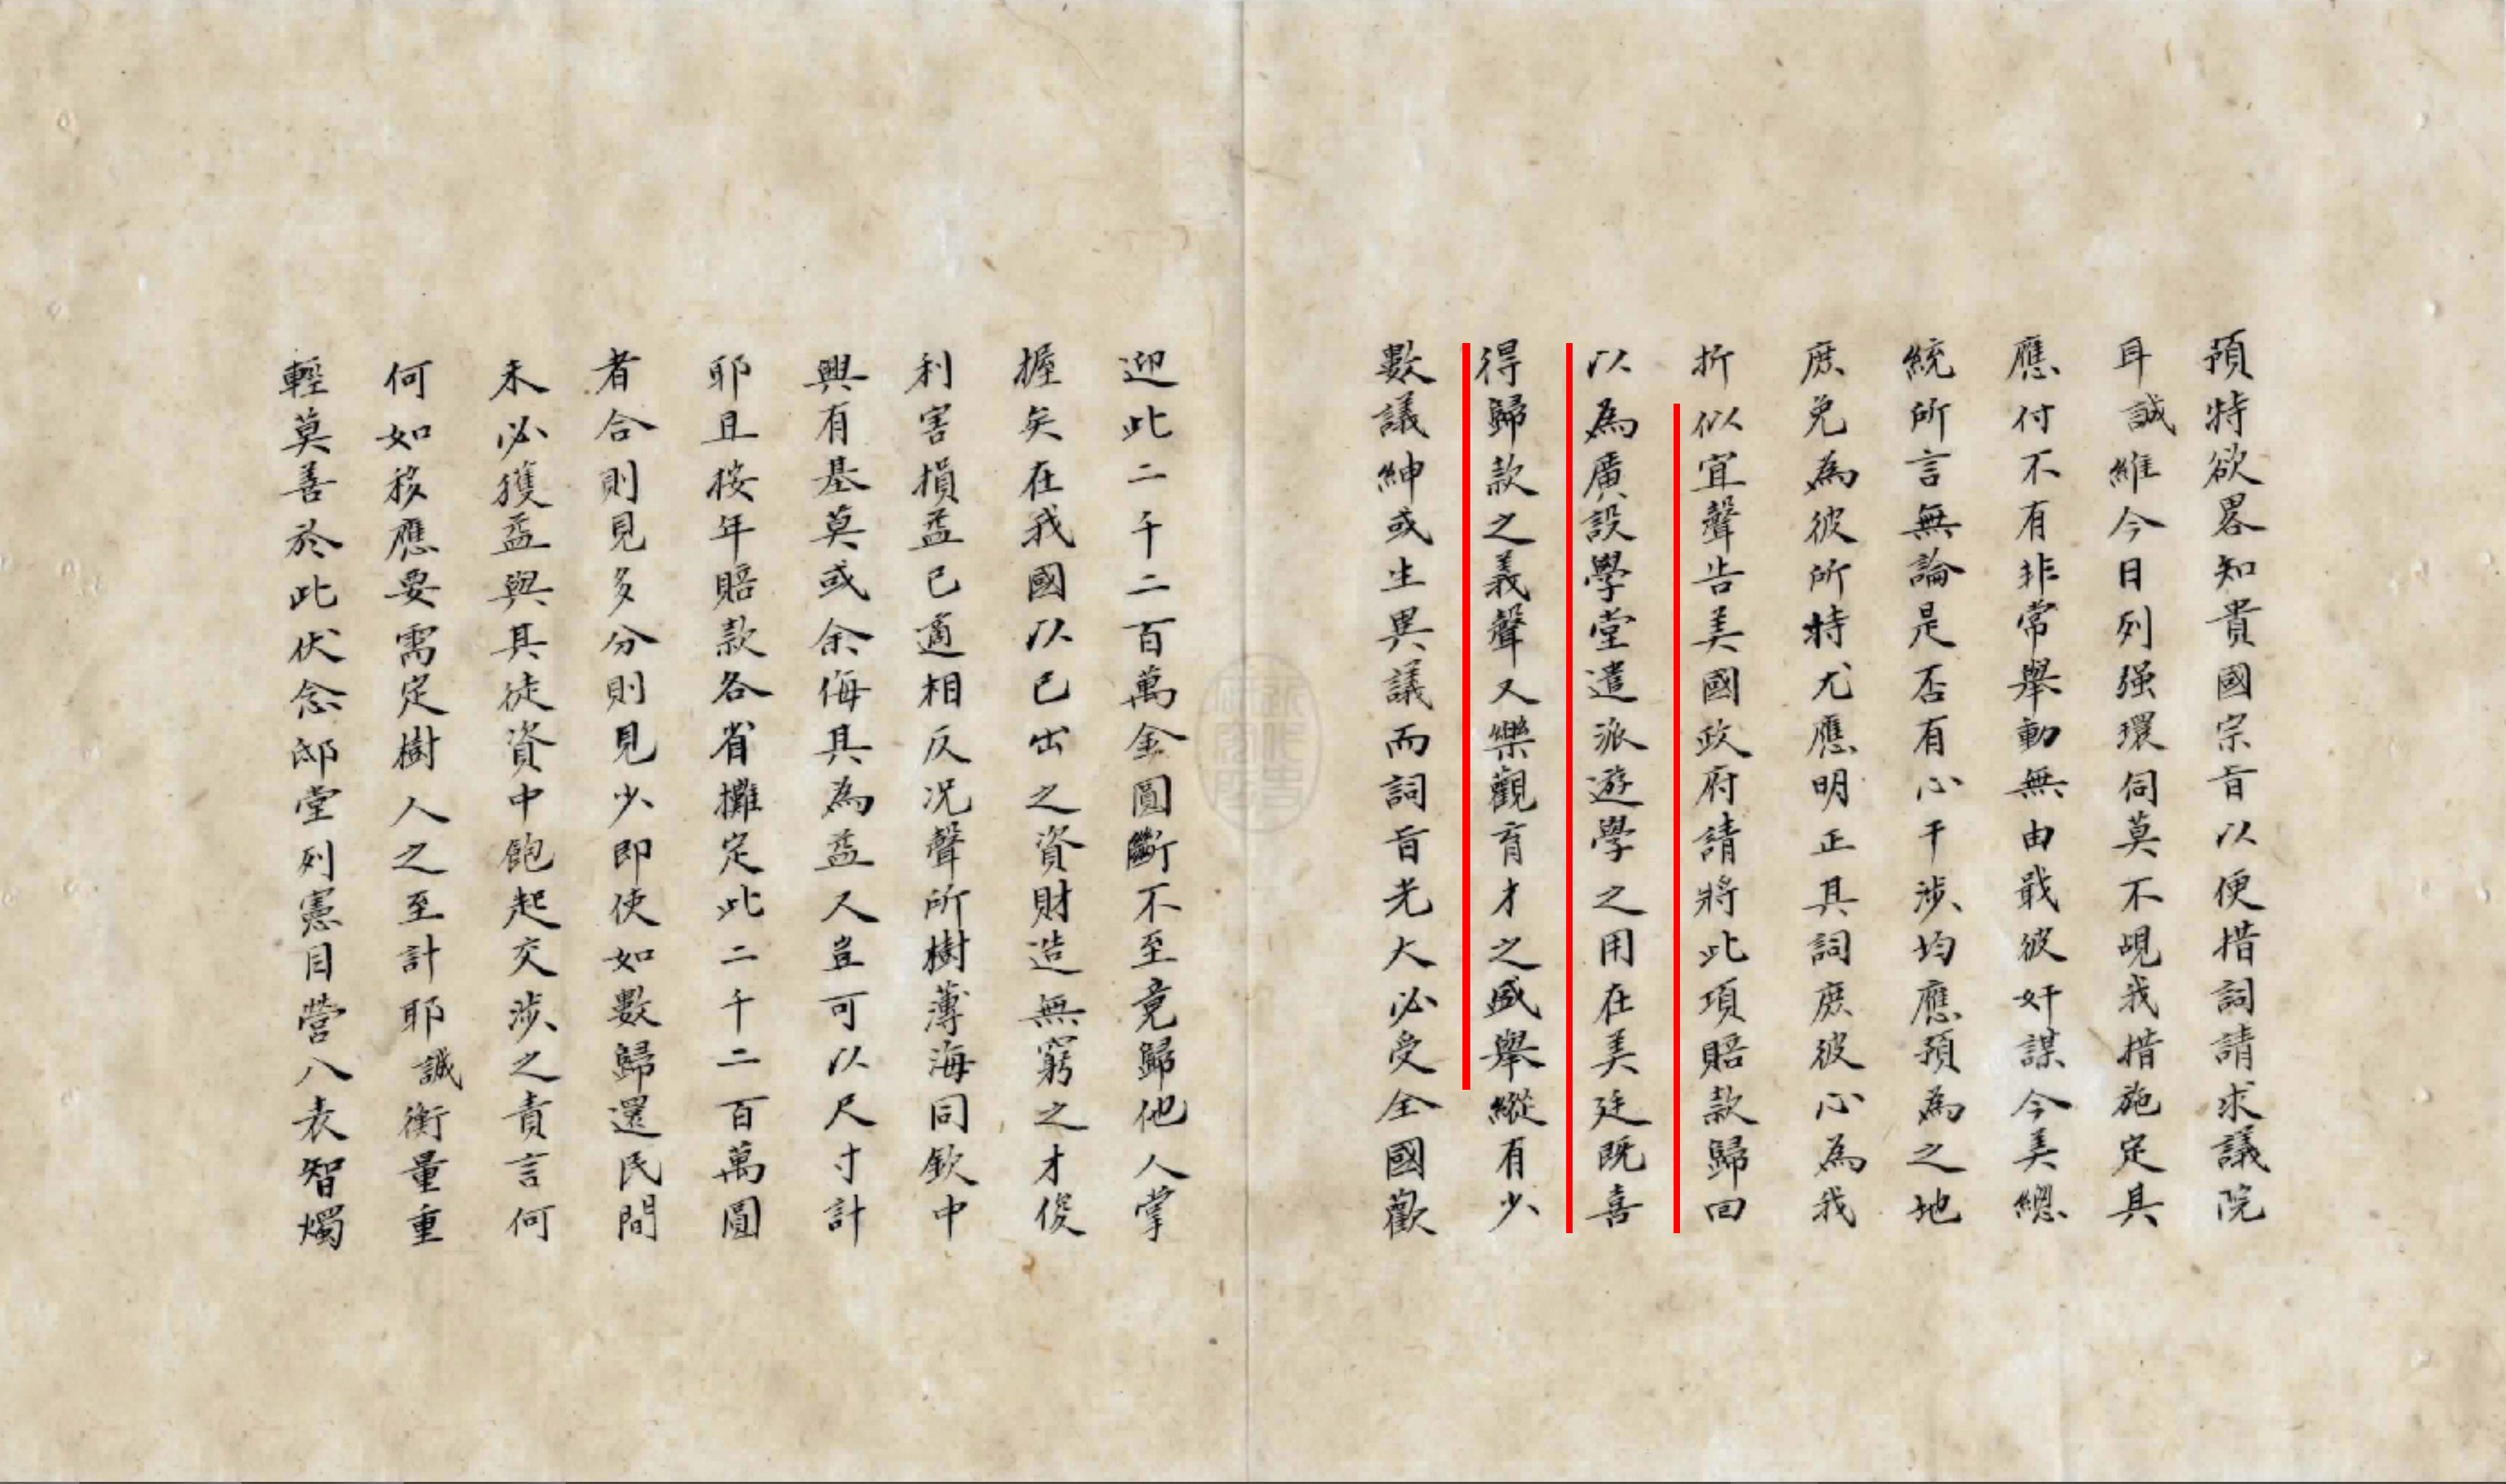 預特欲畧知貴國宗旨以便措詞請求議院
耳誠維今日列强環伺莫不覘我措施定具
應付不有非常舉動無由戢彼奸謀今美總
統所言無論是否有心干涉均應預為之地
庶免為彼所持尤應明正其詞庶彼心為我
折似宜聲告美國政府請將此項賠款歸回
以為廣設學堂遣派遊學之用在美廷既喜
得歸款之義聲又樂觀育才之盛舉縱有少
數議紳或生異議而詞旨光大必受全國歡
迎此二千二百萬金圓斷不至竟歸他人掌
握矣在我國以已出之資財造無窮之才俊
利害損益已適相反況聲所樹薄海同欽中
興有基莫或余侮其為益又豈可以尺寸計
耶且按年賠款各省攤定此二千二百萬圓
者合則見多分則見少即使如數歸還民間
未必獲益與其徒資中飽起交涉之責言何
何如移應要需定樹人之至計耶誠衡量重
輕莫善於此伏念邸堂列憲目營八表智燭